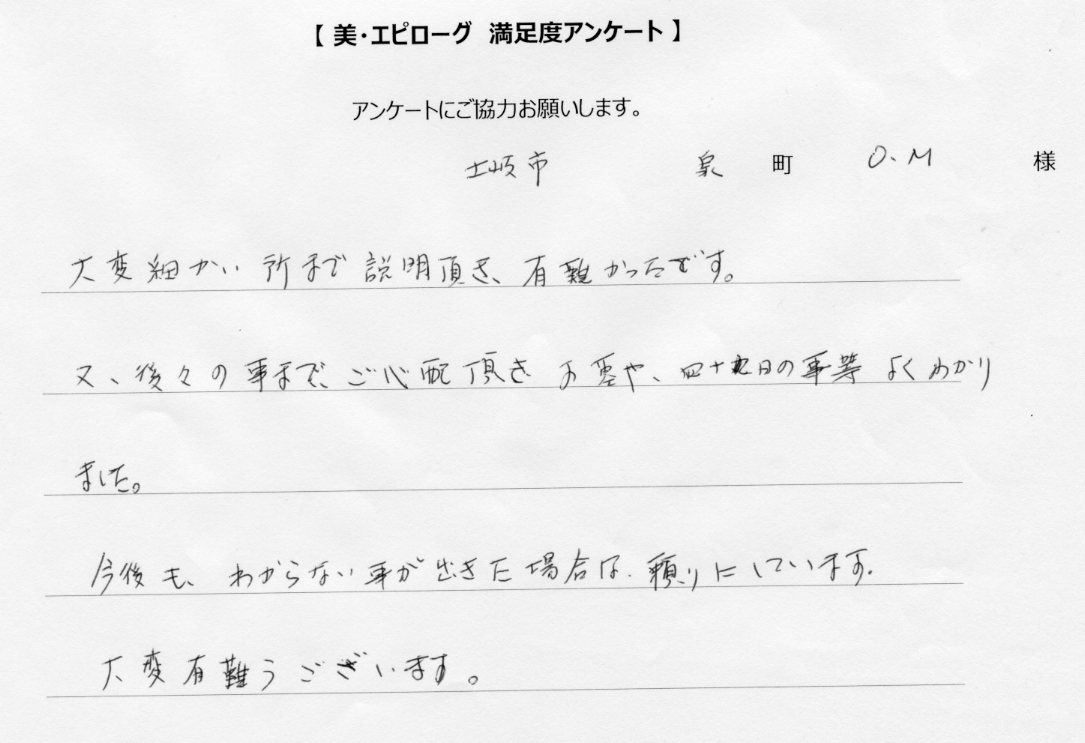 【 美・エピローグ 満足度アンケート 】
アンケートにご協力お願いします。
土岐市 泉 町 O.M 様
大変細かい所まで説明頂き、有難かったです。
又、後々の事まで、ご心配頂き お墓や、四十九日の事等 よくわかり
ました。
今後も、わからない事が出きた場合は、頼りにしています。
大変有難うございます。